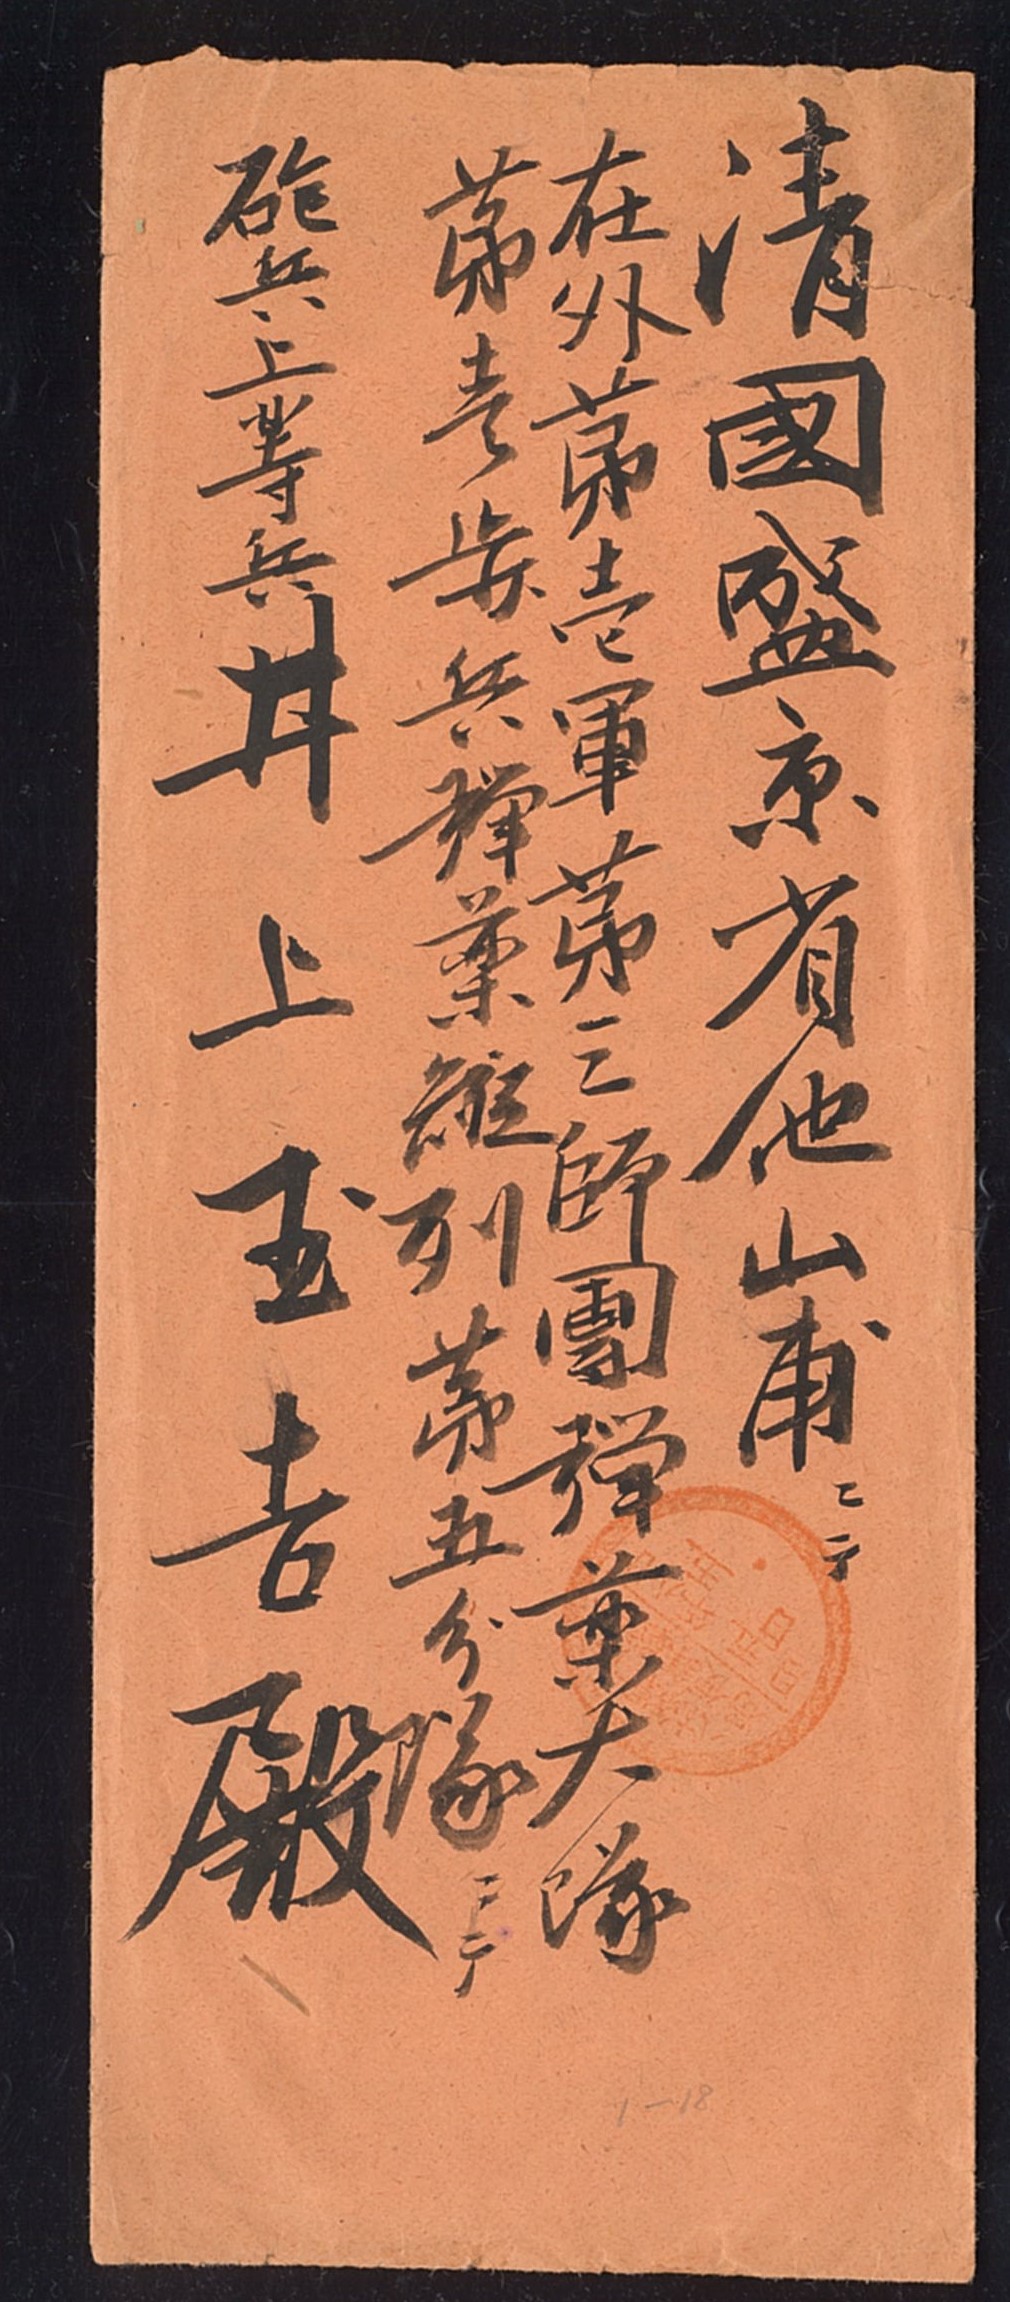 清國盛京省他山甫ニテ
在外第壱軍第三師團弾薬大隊
第壱歩兵弾薬縦列第五分隊ニテ
砲兵上等兵井上玉吉殿
1-18